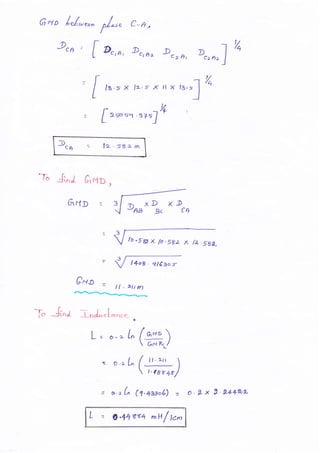 GMD between phase C-A,
D_CA = [ D_C1A1 D_C1A2 D_C2A1 D_C2A2 ]^1/4
= [ 13.5 x 12.5 x 11 x 13.5 ]^1/4
= [ 25059.375 ]^1/4
D_CA = 12.582 m
To find GMD,
GMD = 3√ D_AB x D_BC x D_CA
= 3√ 10.582 x 10.582 x 12.582
= 3√ 1408.916305
GMD = 11.211 m
To find Inductance.
L = 0.2 ln (GMD / GMR_L)
= 0.2 ln (11.211 /
= 0.2 ln (9.43306) = 0.2 x 2.24422
L = 0.44884 mH/km